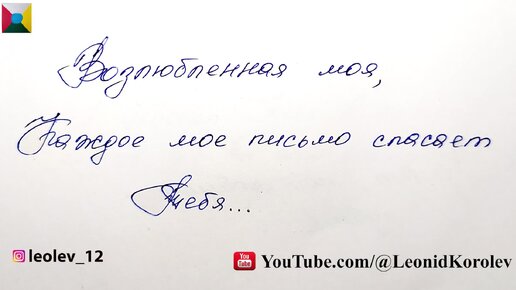 Возлюбленная моя,
Каждое мое письмо спасает
Тебя...
leolev_12
YouTube.com/@LeonidKorolev